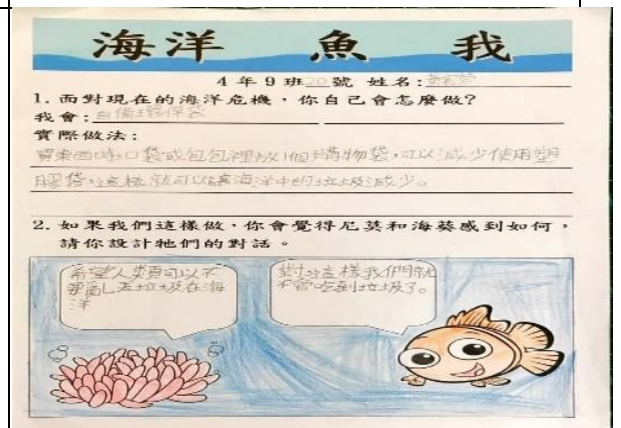 海洋 魚 我
4 年 9 班 20 號 姓名:
1. 而對現在的海洋危機,你自己會怎麼做?
我會:自備環保袋
實際做法:
買東西時口袋或包包裡放1個購物袋,可以減少使用塑
膠袋,這樣就可以讓海洋中的垃圾減少。
2. 如果我們這樣做,你會覺得尼莫和海葵感到如何,
請你設計牠們的對話。
希望人類可以不
要亂丟垃圾在海
洋
對!這樣我們就
不會吃到垃圾了。